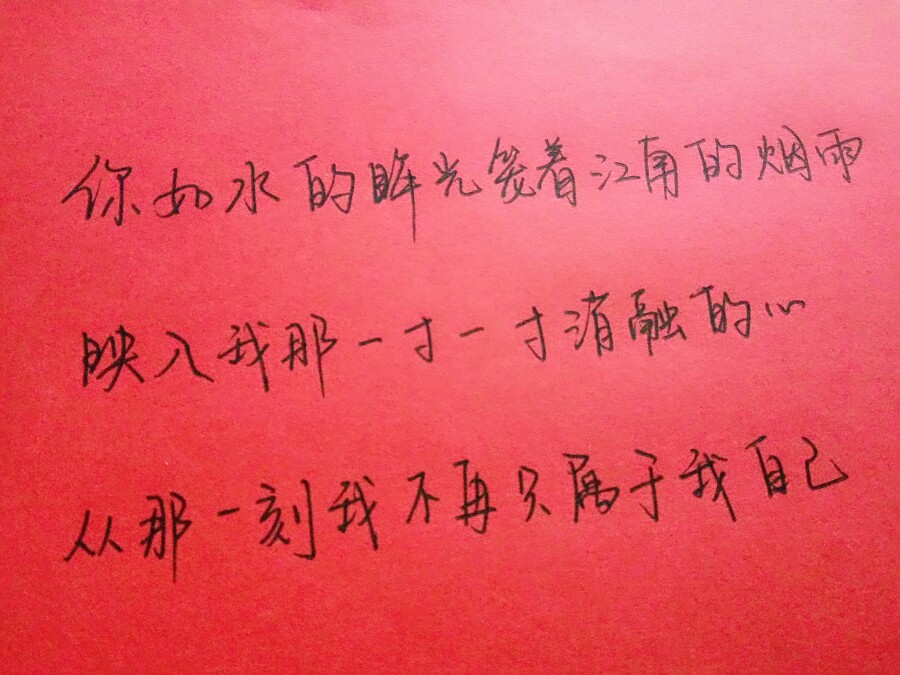 你如水的眸光笼着江南的烟雨
映入我那一寸一寸消融的心
从那一刻我不再只属于我自己